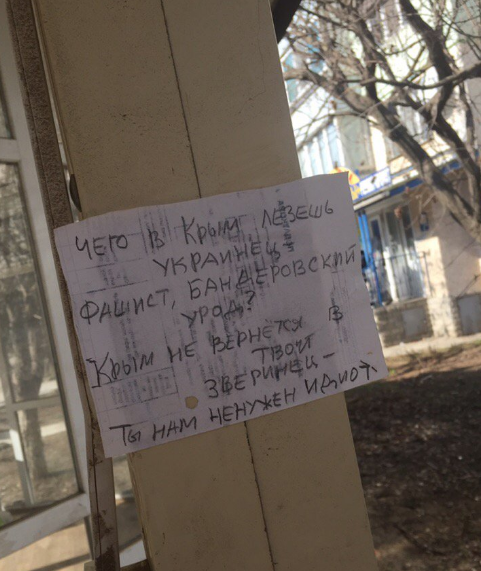 ЧЕГО В КРЫМ ЛЕЗЕШЬ
УКРАИНЕЦ-
ФАШИСТ, БАНДЕРОВСКИЙ
УРОД?
КРЫМ НЕ ВЕРНЕТСЯ В
ТВОЙ
ЗВЕРИНЕЦ-
ТЫ НАМ НЕНУЖЕН ИДИОТ.